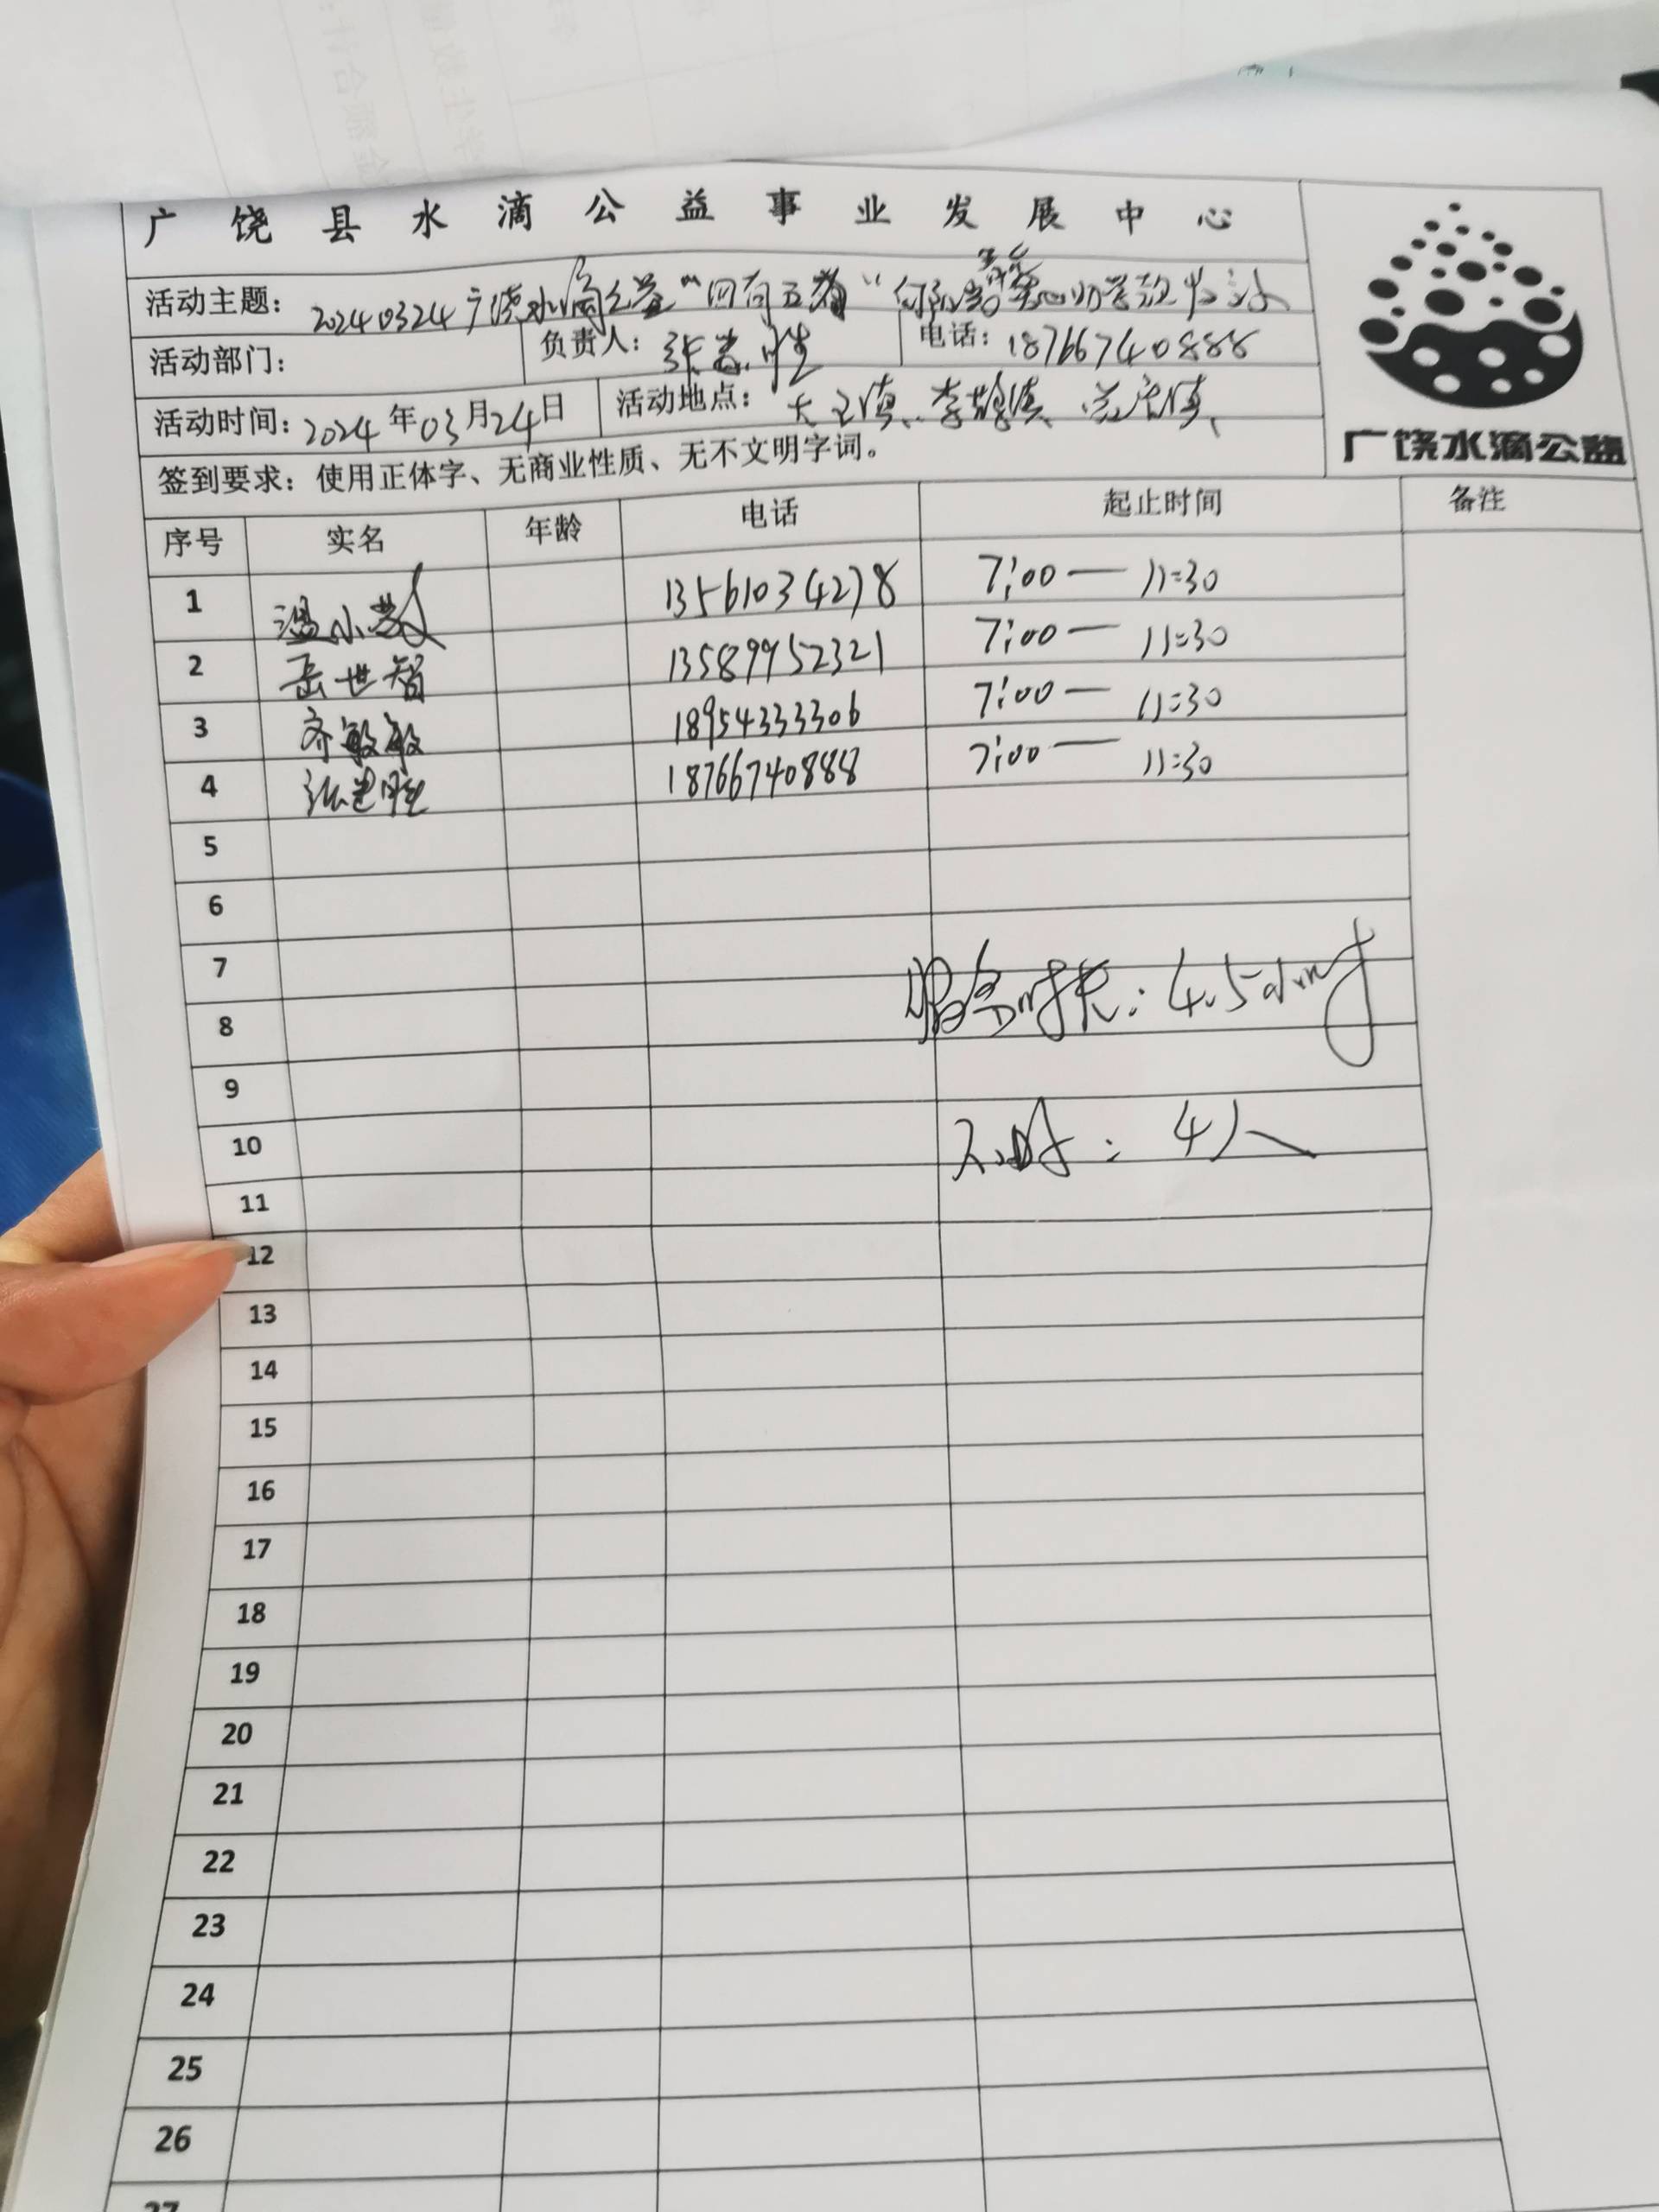 广饶县水滴公益事业发展中心
活动主题：20240324广饶水滴公益“四有五为”爱心助学款发放
活动部门： 负责人： 张 电话：18766740888
活动时间：2024年03月24日 活动地点：大王镇、李鹊镇、
广饶水滴公益
签到要求：使用正体字、无商业性质、无不文明字词。
序号 实名 年龄 电话 起止时间 备注
1 温小 13561034278 7:00—11:30
2 岳世智 13589952321 7:00—11:30
3 齐敏敏 18954333306 7:00—11:30
4 张 18766740888 7:00—11:30
5
6
7
服务时长：4.5小时
8
9
10
：4人
11
12
13
14
15
16
17
18
19
20
21
22
23
24
25
26
27